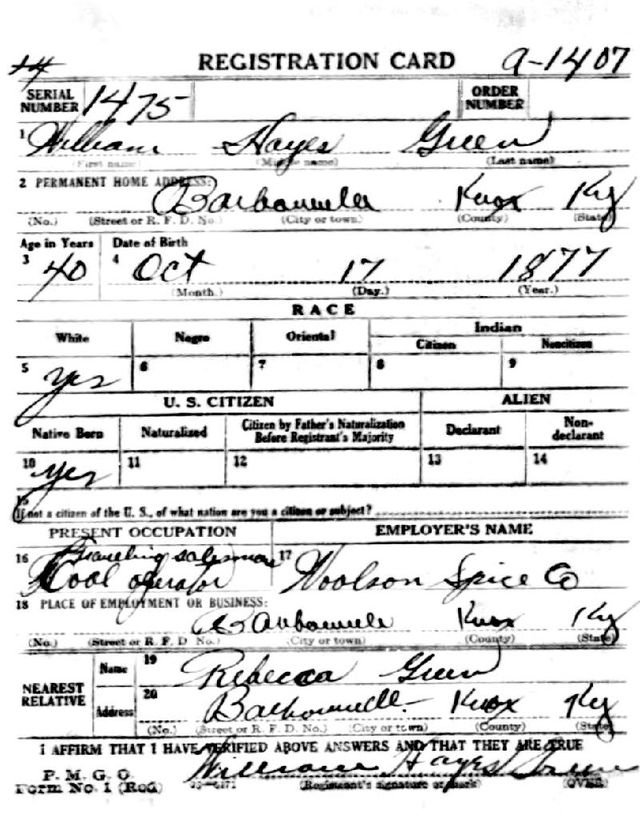 REGISTRATION CARD 9-1407
SERIAL NUMBER 1475 ORDER NUMBER
1 William Hayes Green
(First name) (Middle name) (Last name)
2 PERMANENT HOME ADDRESS:
Barbourville Knox Ky
(No.) (Street or R. F. D. No.) (City or town) (County) (State)
Age in Years Date of Birth
3 40 4 Oct 17 1877
(Month.) (Day.) (Year.)
RACE
White Negro Oriental Indian
Citizen Noncitizen
5 yes 6 7 8 9
U. S. CITIZEN ALIEN
Native Born Naturalized Citizen by Father's Naturalization Before Registrant's Majority Declarant Non-declarant
10 yes 11 12 13 14
15
If not a citizen of the U. S., of what nation are you a citizen or subject?
PRESENT OCCUPATION EMPLOYER'S NAME
Traveling salesman
16 Coal operator 17 Woolson Spice Co
18 PLACE OF EMPLOYMENT OR BUSINESS:
Barbourville Knox Ky
(No.) (Street or R. F. D. No.) (City or town) (County) (State)
NEAREST RELATIVE
Name 19 Rebecca Green
Address 20 Barbourville Knox Ky
(No.) (Street or R. F. D. No.) (City or town) (County) (State)
I AFFIRM THAT I HAVE VERIFIED ABOVE ANSWERS AND THAT THEY ARE TRUE
P. M. G. O.
Form No. 1 (Red) William Hayes Green
(Registrant's signature or mark) (OVER)